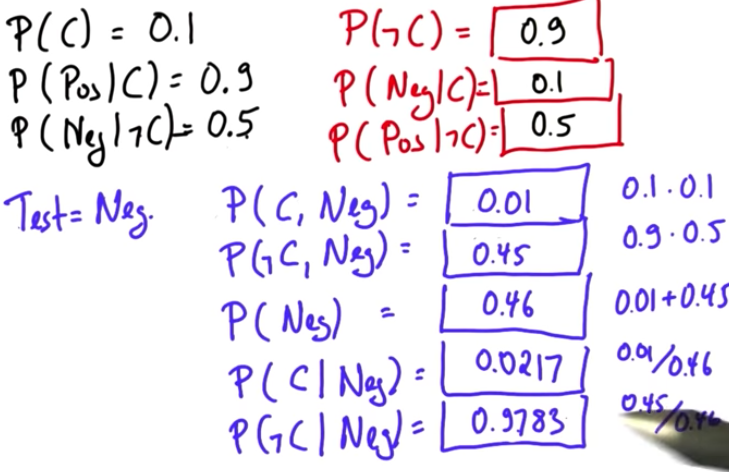 P(C) = 0.1
P(¬C) = 0.9
P(Pos|C) = 0.9
P(Neg|C)= 0.1
P(Neg|¬C)= 0.5
P(Pos|¬C)= 0.5
Test= Neg.
P(C, Neg) = 0.01 0.1 · 0.1
P(¬C, Neg) = 0.45 0.9 · 0.5
P(Neg) = 0.46 0.01+0.45
P(C|Neg) = 0.0217 0.01/0.46
P(¬C|Neg) = 0.9783 0.45/0.46